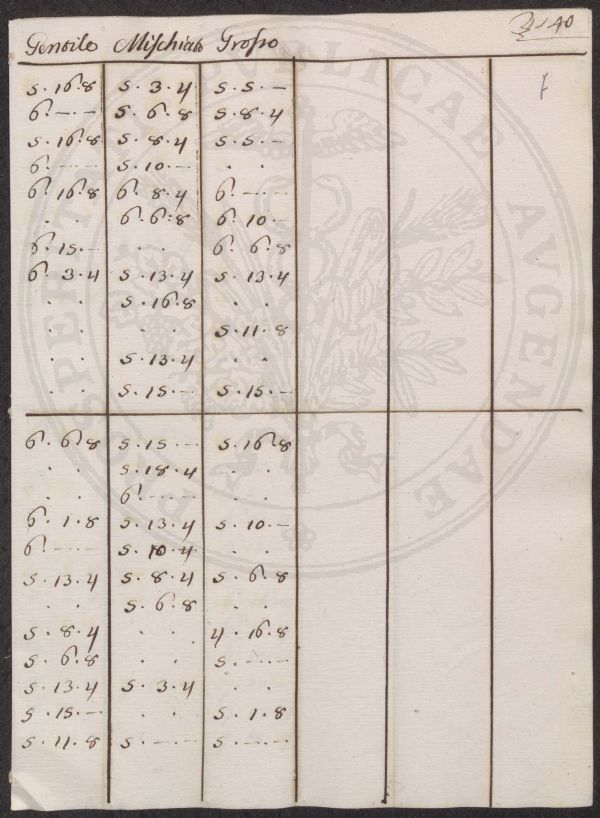 40
Gentile Mischiato Grosso
5.16.8 5.3.4 5.5.—
6.—.— 5.6.8 5.8.4
5.16.8 5.8.4 5.5.—
6.—.— 5.10.— . .
6.16.8 6.8.4 6.—.—
. . 6.6.8 6.10.—
6.15.— . . 6.6.8
6.3.4 5.13.4 5.13.4
. . 5.16.8 . .
. . . . 5.11.8
. . 5.13.4 . .
. . 5.15.— 5.15.—
6.6.8 5.15.— 5.16.8
. . 5.18.4 . .
. . 6.—.—
6.1.8 5.13.4 5.10.—
6.—.— 5.10.4 . .
5.13.4 5.8.4 5.6.8
. . 5.6.8 . .
5.8.4 . . 4.16.8
5.6.8 . . 5.—.—
5.13.4 5.3.4 . .
5.15.— . . 5.1.8
5.11.8 5.—.— 5.—.—
PROSPERITATI PUBLICAE AVGENDAE